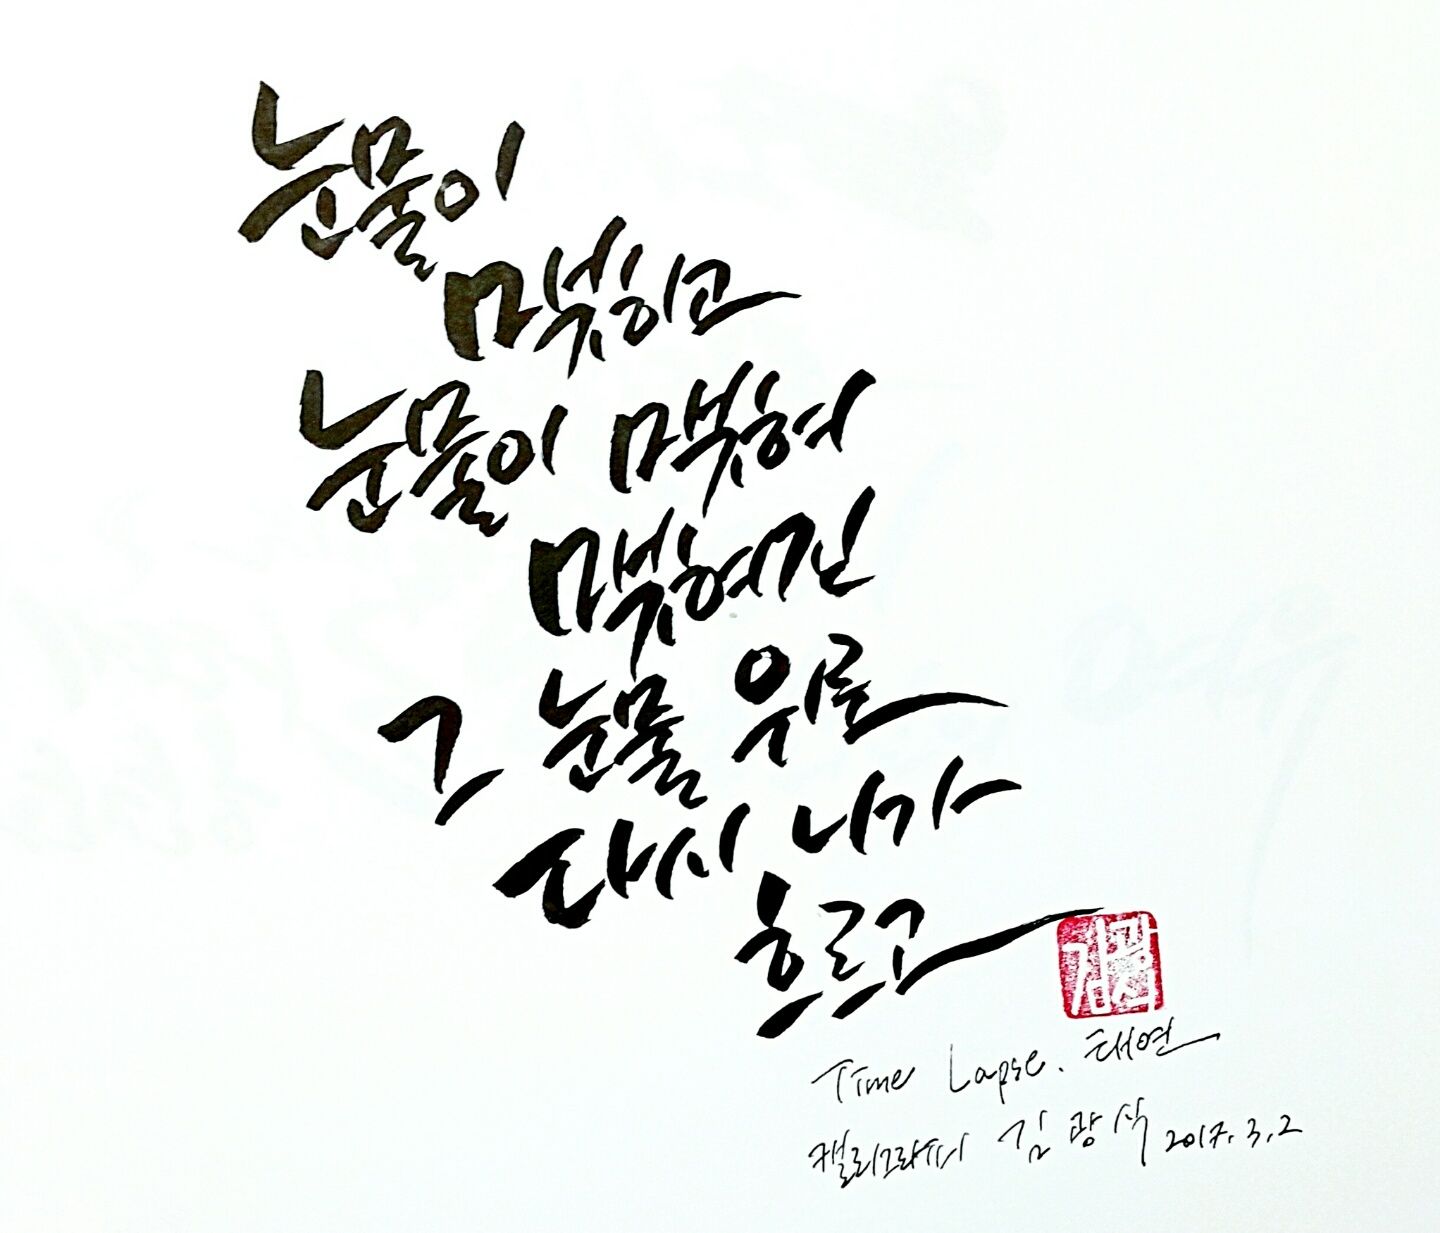 눈물이
맺히고
눈물이 맺혀
맺혀진
그 눈물 위로
다시 니가
흐르고
김광석
Time Lapse. 태연
캘리그라피 김광석 2017.3.2